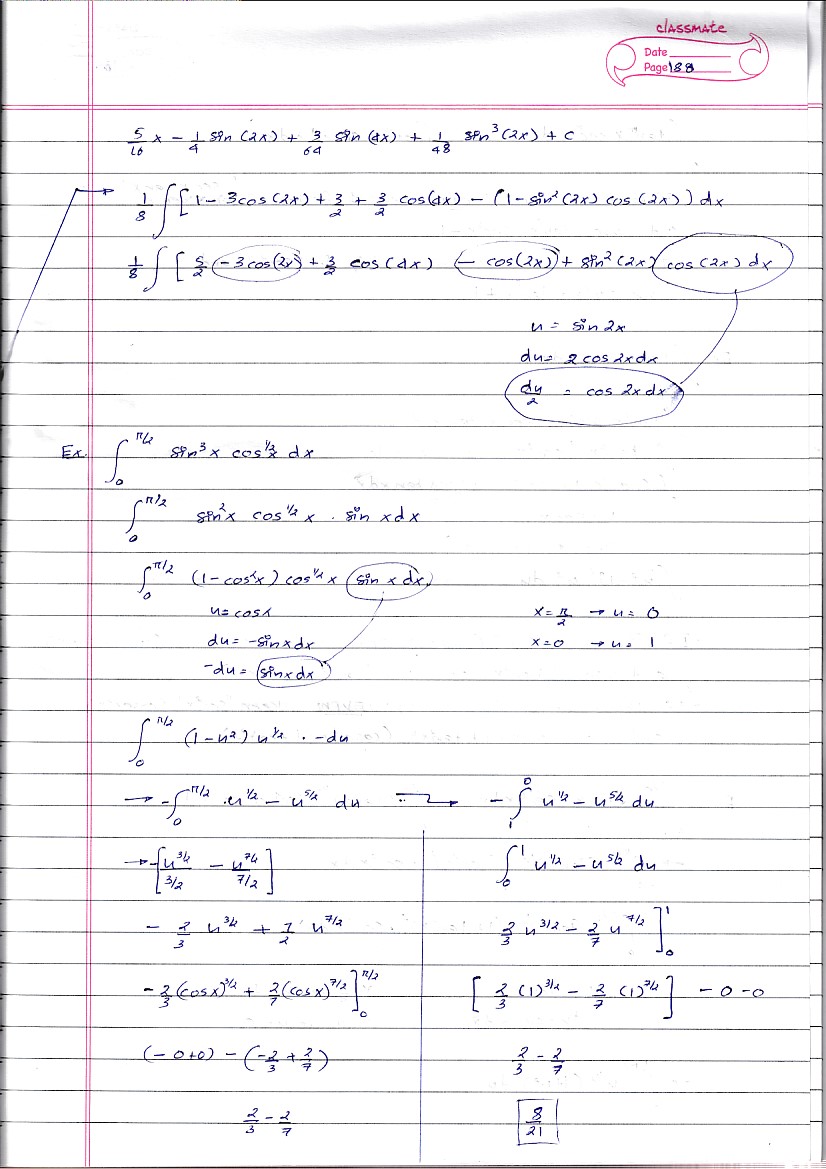 classmate
Date
Page 188
5/16 x - 1/4 sin (2x) + 3/64 sin (4x) + 1/48 sin³ (2x) + c
1/8 ∫ [ 1 - 3cos (2x) + 3/2 + 3/2 cos(4x) - (1 - sin² (2x) cos (2x) ) dx
1/8 ∫ [ 5/2 - 3cos(2x) + 3/2 cos (4x) - cos(2x) + sin² (2x) cos (2x) dx
u = sin 2x
du = 2 cos 2x dx
du/2 = cos 2x dx
Ex. ∫₀^π/2 sin³ x cos^1/2 x dx
∫₀^π/2 sin² x cos^1/2 x . sin x dx
∫₀^π/2 (1 - cos² x) cos^1/2 x sin x dx
u = cos x x = π/2 → u = 0
du = - sin x dx x = 0 → u = 1
-du = sin x dx
∫₀^π/2 (1 - u²) u^1/2 . -du
→ - ∫₀^π/2 . u^1/2 - u^5/2 du → - ∫₁^0 u^1/2 - u^5/2 du
→ - [ u^3/2 / 3/2 - u^7/2 / 7/2 ] ∫₀^1 u^1/2 - u^5/2 du
- 2/3 u^3/2 + 7/2 u^7/2 2/3 u^3/2 - 2/7 u^7/2 ]₀^1
- 2/3 (cos x)^3/2 + 2/7 (cos x)^7/2 ]₀^π/2 [ 2/3 (1)^3/2 - 2/7 (1)^7/2 ] - 0 - 0
(- 0 + 0) - ( -2/3 + 2/7 ) 2/3 - 2/7
2/3 - 2/7 8/21